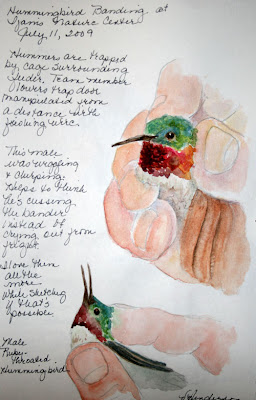 Hummingbird Banding at
Travis Nature Center
July 11, 2009
Hummers are trapped
by cage surrounding
feeder. Team member
lowers trap door
manipulated from
a distance with
fishing wire.
This male
was wiggling
& chirping.
Helps to think
he's cussing
the bander
instead of
crying out from
fright.
I love them
all the
more
while sketching
if that's
possible.
Male
Ruby-
throated
Hummingbird
Henderson